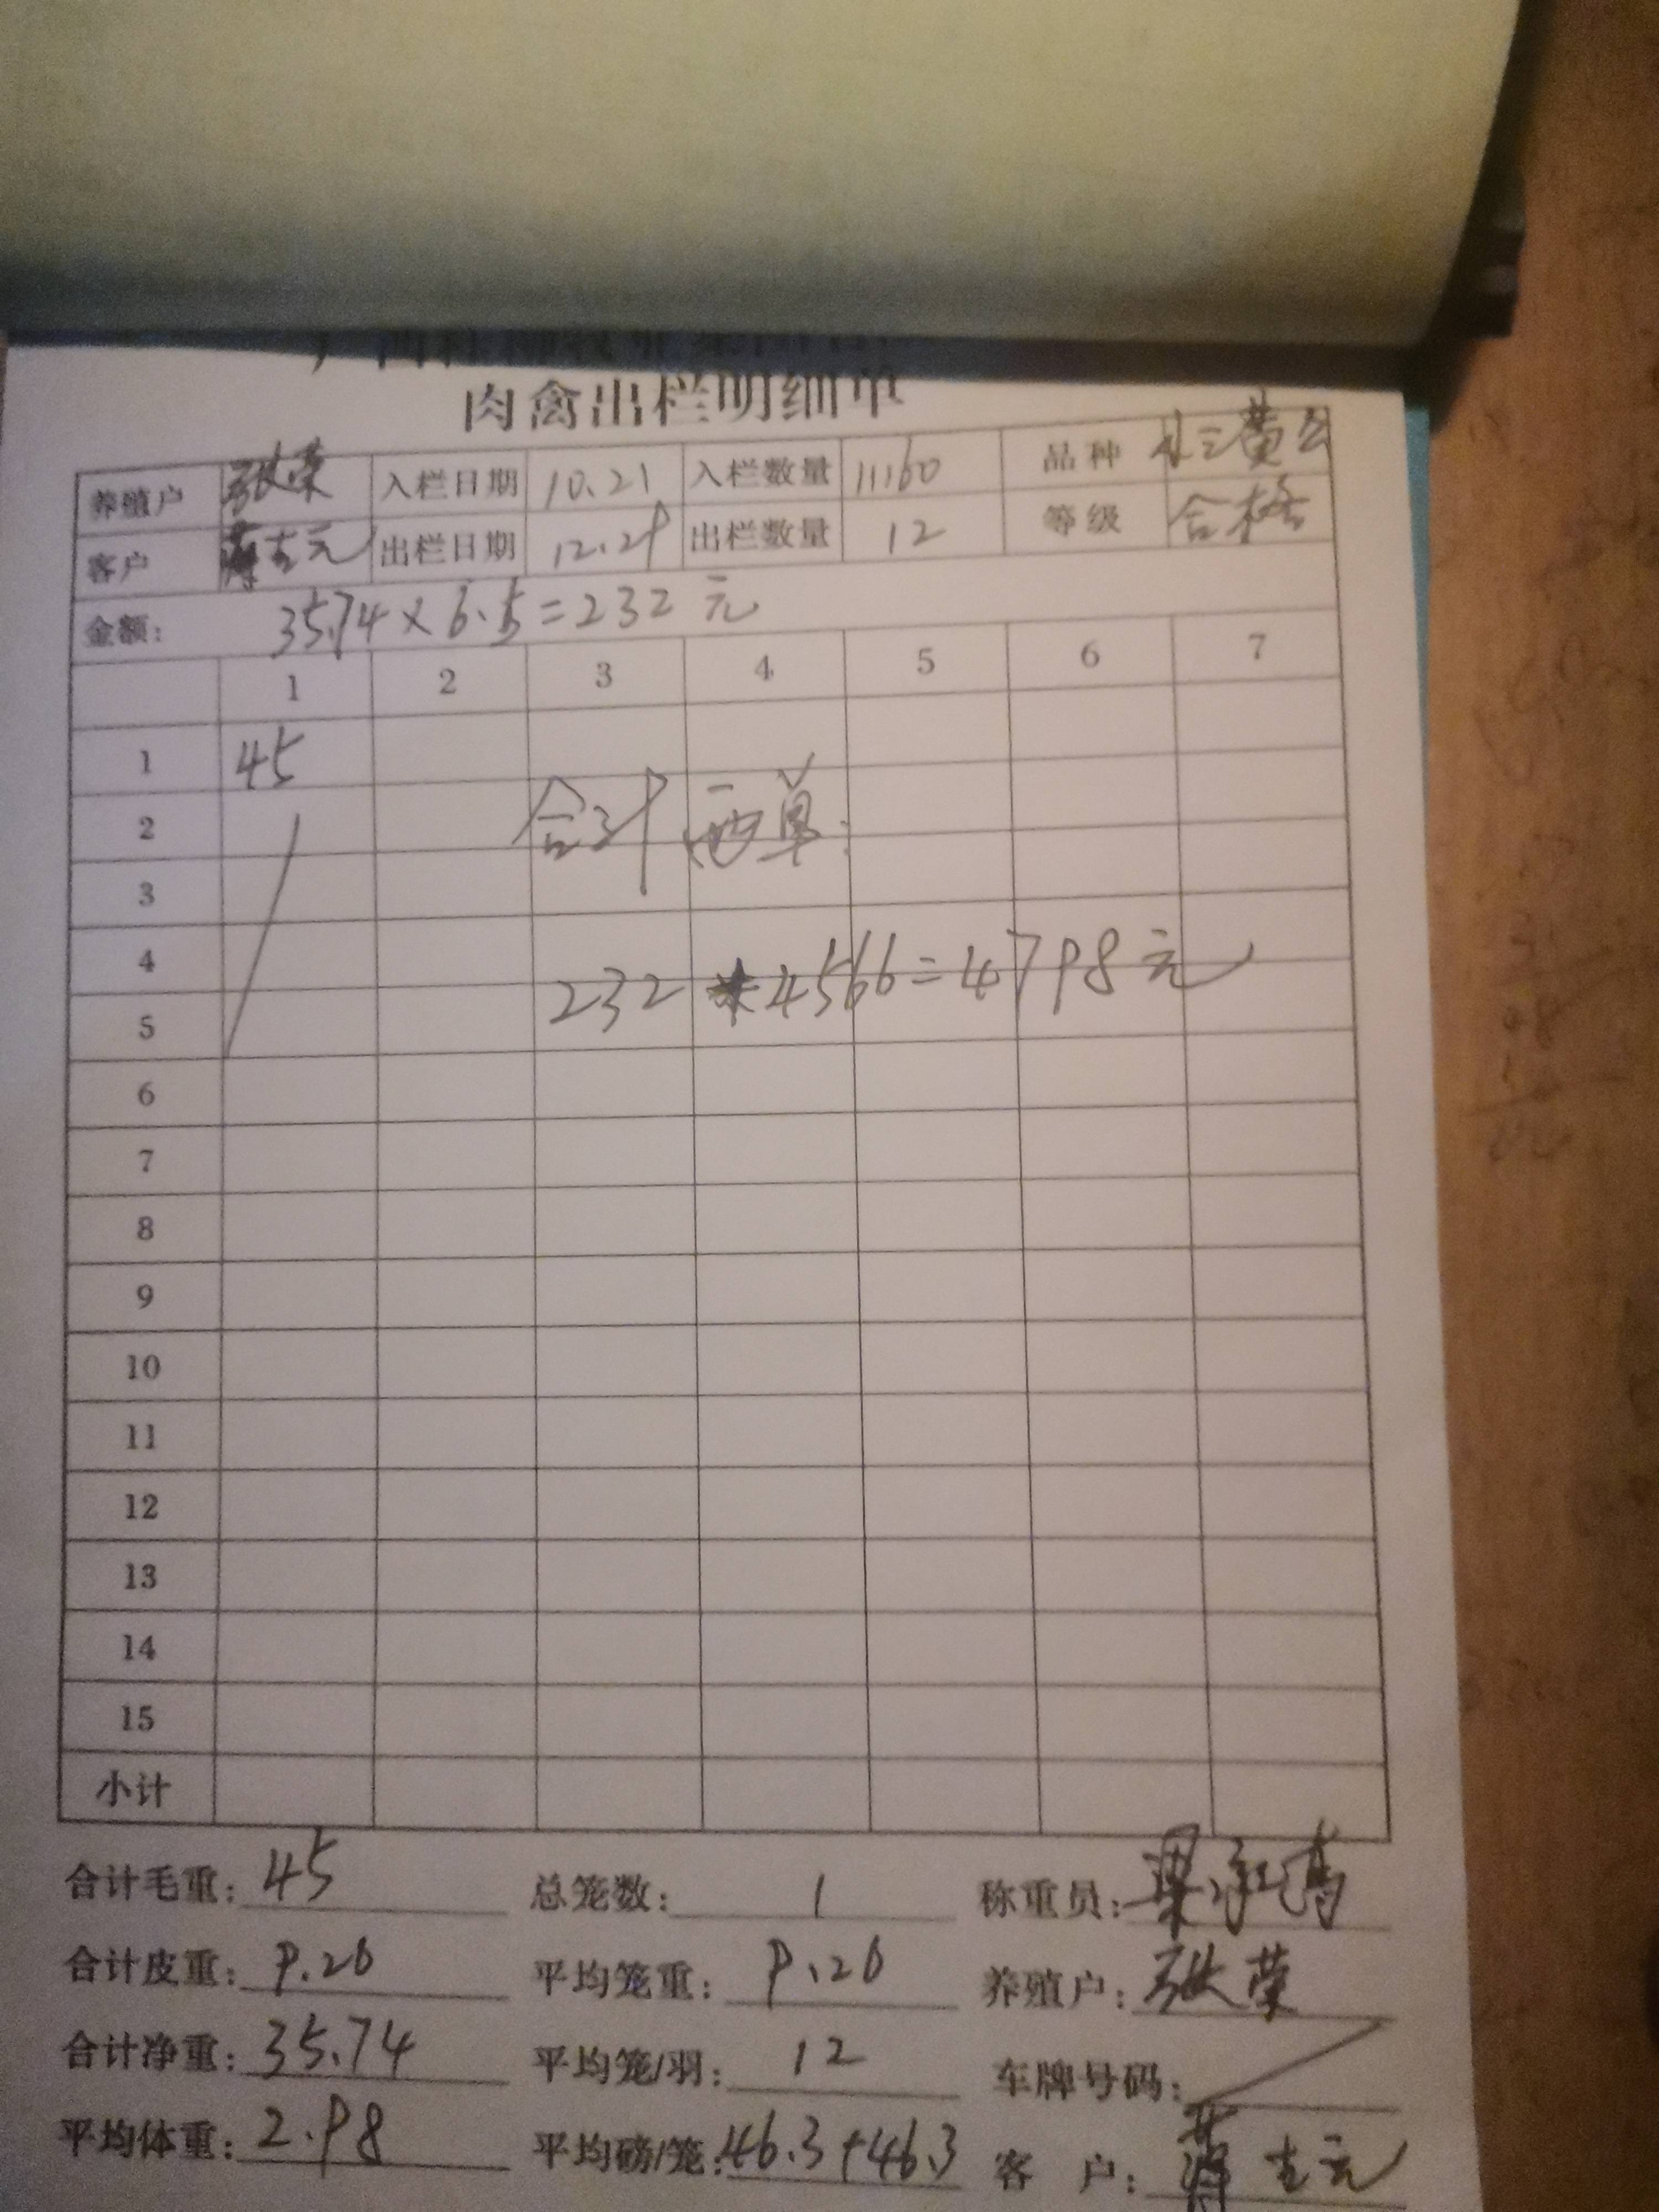 肉禽出栏明细单
养殖户 张荣 入栏日期 10.21 入栏数量 11160 品种 三黄公
客户 蒋吉元 出栏日期 12.29 出栏数量 12 等级 合格
金额: 35.74×6.5=232元
1 2 3 4 5 6 7
1 45
2 合计两单:
3
4
5 232 4566=4798元
6
7
8
9
10
11
12
13
14
15
小计
合计毛重: 45 总笼数: 1 称重员: 梁
合计皮重: 9.26 平均笼重: 9.26 养殖户: 张荣
合计净重: 35.74 平均笼/羽: 12 车牌号码:
平均体重: 2.98 平均磅/笼: 46.3+46.3 客 户: 蒋吉元